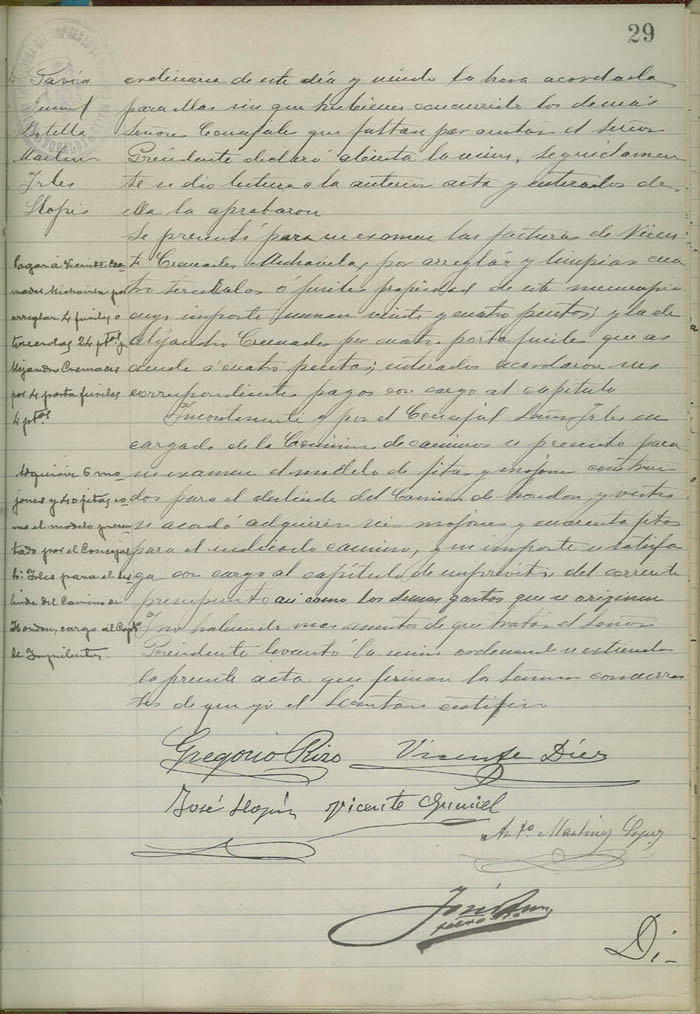 29
Pavía
Botella
Martínez
Irles
Llopis
ordinaria de este día y siendo la hora acordada
para ellas sin que hubiesen concurrido los demás
señores Concejales que faltan por el señor
Presidente declaró abierta la sesión, seguidamen
te se dio lectura a la anterior acta y enterados de
ella la aprobaron
Se presentó para su examen las facturas de Vicen
te Cremades Mira por arreglar y limpiar cua
tro tercerolas o fusiles propiedad de este municipio
cuyo importe suman veinte y cuatro pesetas; y la de
Alejandro Cremades por cuatro porta fusiles que as
ciende a cuatro pesetas; enterados acordaron sus
correspondientes pagos con cargo al capítulo
Incontinente y por el Concejal Señor Irles en
cargado de la Comisión de caminos se presentó para
su examen el modelo de fitas y mojones construi
dos para el deslinde del Camino de Hondon, y vistos
se acordó adquirir seis mojones y cuarenta fitas
para el indicado camino, y su importe se satisfa
ga con cargo al capítulo de imprevistos del corriente
presupuesto así como los demas gastos que se originen
Y no habiendo mas asuntos de que tratar el señor
Presidente levantó la sesión ordenando se extienda
la presente acta que firman los Señores concurren
tes de que yo el Secretario certifico
Pagar á Vicente Cre-
mades por
arreglar 4 fusiles o
tercerolas 24 ptas y
Alejandro Cremades
por 4 porta fusiles
4 ptas
Adquirir 6 mo-
jones y 40 fitas, co-
mo el modelo presen-
tado por el Concejal
Sr. Irles para el des-
linde del Camino de
Hondon, cargo al Capto
de Imprevistos
Gregorio Rizo Vicente Díez
José Llopis Vicente
Anto Martinez Lopez
José
Di-